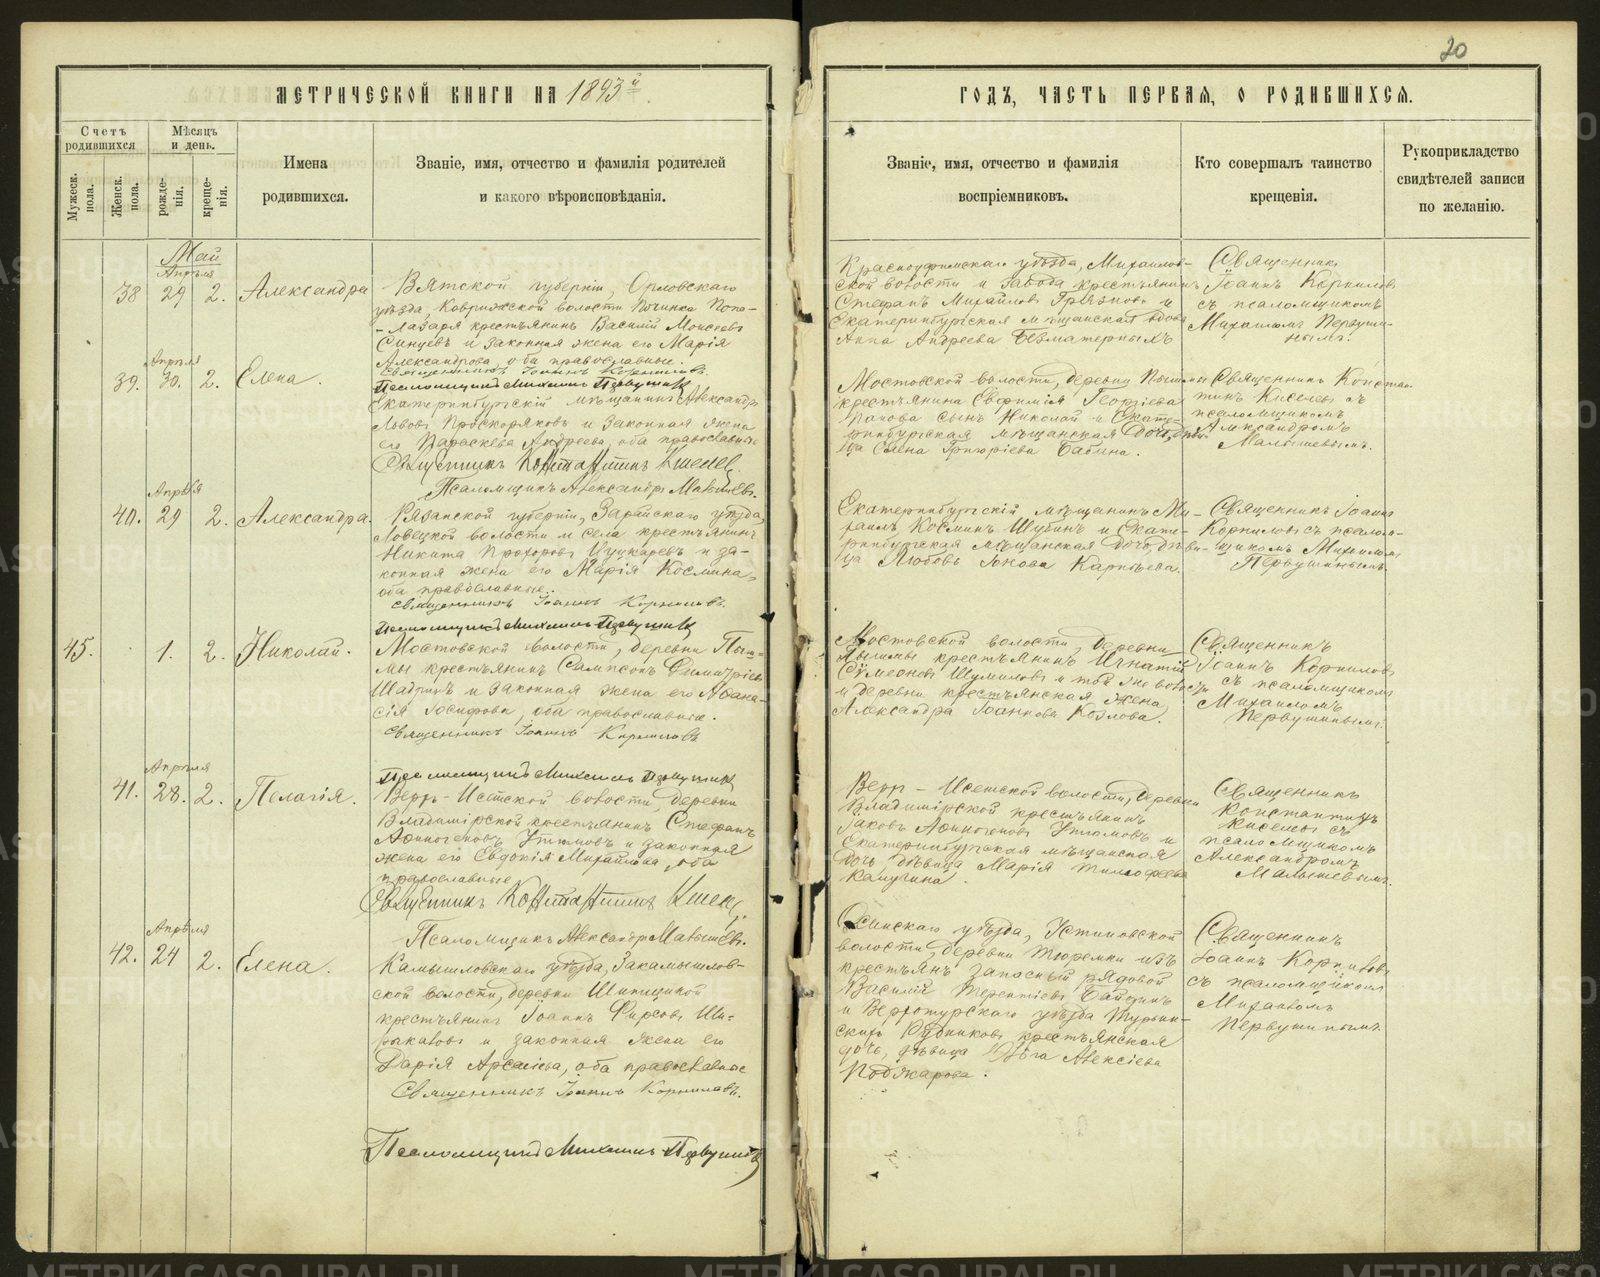 20
МЕТРИЧЕСКОЙ КНИГИ НА 1893й
ГОДЪ, ЧАСТЬ ПЕРВАЯ, О РОДИВШИХСЯ.
Счетъ родившихся
Мѣсяцъ и день.
Мужеск. пола.
Женск. пола.
рожде-нія.
креще-нія.
Имена
родившихся.
Званіе, имя, отчество и фамилія родителей
и какого вѣроисповѣданія.
Званіе, имя, отчество и фамилія
воспріемниковъ.
Кто совершалъ таинство
крещенія.
Рукоприкладство
свидѣтелей записи
по желанію.
Май
Апрѣля
38 29 2. Александра
Вятской губерніи, Орловскаго
уѣзда, Кавринской волости Починка Попо-
Лазаря крестьянинъ Василій Моисеевъ
Синцевъ и законная жена его Марія
Александрова, оба православные.
Священникъ Іоаннъ Корниловъ.
Псаломщикъ Михаилъ Первушинъ
Красноуфимскаго уѣзда, Михайлов-
ской волости и завода крестьянинъ
Стефанъ Михайловъ Грязновъ и
Екатеринбургская мѣщанская вдова
Анна Андреева Безматерныхъ
Священникъ
Іоаннъ Корниловъ
съ псаломщикомъ
Михаиломъ Первуши-
нымъ.
Апрѣля
39. 30. 2. Елена.
Екатеринбургскій мѣщанинъ Александръ
Львовъ Проскоряковъ и законная жена
его Параскева Андреева, оба православные
Священникъ Константинъ Киселевъ
Псаломщикъ Александръ Малышевъ.
Мостовской волости, деревни Пышмы
крестьянина Евфимія Георгіева
Панова сынъ Николай и Екате-
ринбургская мѣщанская дочь, дѣви-
ца Елена Григоріева Бабина.
Священникъ Констан-
тинъ Киселевъ съ
псаломщикомъ
Александромъ
Малышевымъ.
Апрѣля
40. 29 2. Александра.
Рязанской губерніи, Зарайскаго уѣзда,
Ловецкой волости и села крестьянинъ
Никита Прохоровъ Цункаревъ и за-
конная жена его Марія Космина,
оба православные.
Священникъ Іоаннъ Корниловъ.
Псаломщикъ Михаилъ Первушинъ
Екатеринбургскій мѣщанинъ Ми-
хаилъ Косминъ Шубинъ и Екате-
ринбургская мѣщанская дочь, дѣви-
ца Любовь Іонова Карпѣева.
Священникъ Іоаннъ
Корниловъ съ псалом-
щикомъ Михаиломъ
Первушинымъ.
45. 1. 2. Николай.
Мостовской волости, деревни Пыш-
мы крестьянинъ Сампсонъ Димитріевъ
Шадринъ и законная жена его Афана-
сія Іосифова, оба православные.
Священникъ Іоаннъ Корниловъ
Псаломщикъ Михаилъ Первушинъ
Мостовской волости, деревни
Пышмы крестьянинъ Игнатій
Сѵмеоновъ Шумиловъ и той же волости
и деревни крестьянская жена
Александра Іоаннова Козлова.
Священникъ
Іоаннъ Корниловъ
съ псаломщикомъ
Михаиломъ
Первушинымъ.
Апрѣля
41. 28. 2. Пелагія.
Верхъ-Исетской волости, деревни
Владимірской крестьянинъ Стефанъ
Афиногеновъ Утюмовъ и законная
жена его Евдокія Михайлова, оба
православные
Священникъ Константинъ Киселевъ
Псаломщикъ Александръ Малышевъ.
Верхъ-Исетской волости, деревни
Владимірской крестьянинъ
Іаковъ Афиногеновъ Утюмовъ и
Екатеринбургская мѣщанская
дочь, дѣвица Марія Тимофеева
Калугина.
Священникъ
Константинъ
Киселевъ съ
псаломщикомъ
Александромъ
Малышевымъ.
Апрѣля
42. 24 2. Елена.
Камышловскаго уѣзда, Закамышлов-
ской волости, деревни Шипициной
крестьянинъ Іоаннъ Фирсовъ Ши-
рыкаловъ и законная жена его
Дарія Арсеніева, оба православные
Священникъ Іоаннъ Корниловъ.
Псаломщикъ Михаилъ Первушинъ
Осинскаго уѣзда, Устиновской
волости, деревни Тюремки изъ
крестьянъ запасный рядовой
Василій Терентіевъ Байдинъ
и Верхотурскаго уѣзда Турьин-
скихъ Рудниковъ крестьянская
дочь, дѣвица Ольга Алексіева
Поджарова.
Священникъ
Іоаннъ Корниловъ
съ псаломщикомъ
Михаиломъ
Первушинымъ.